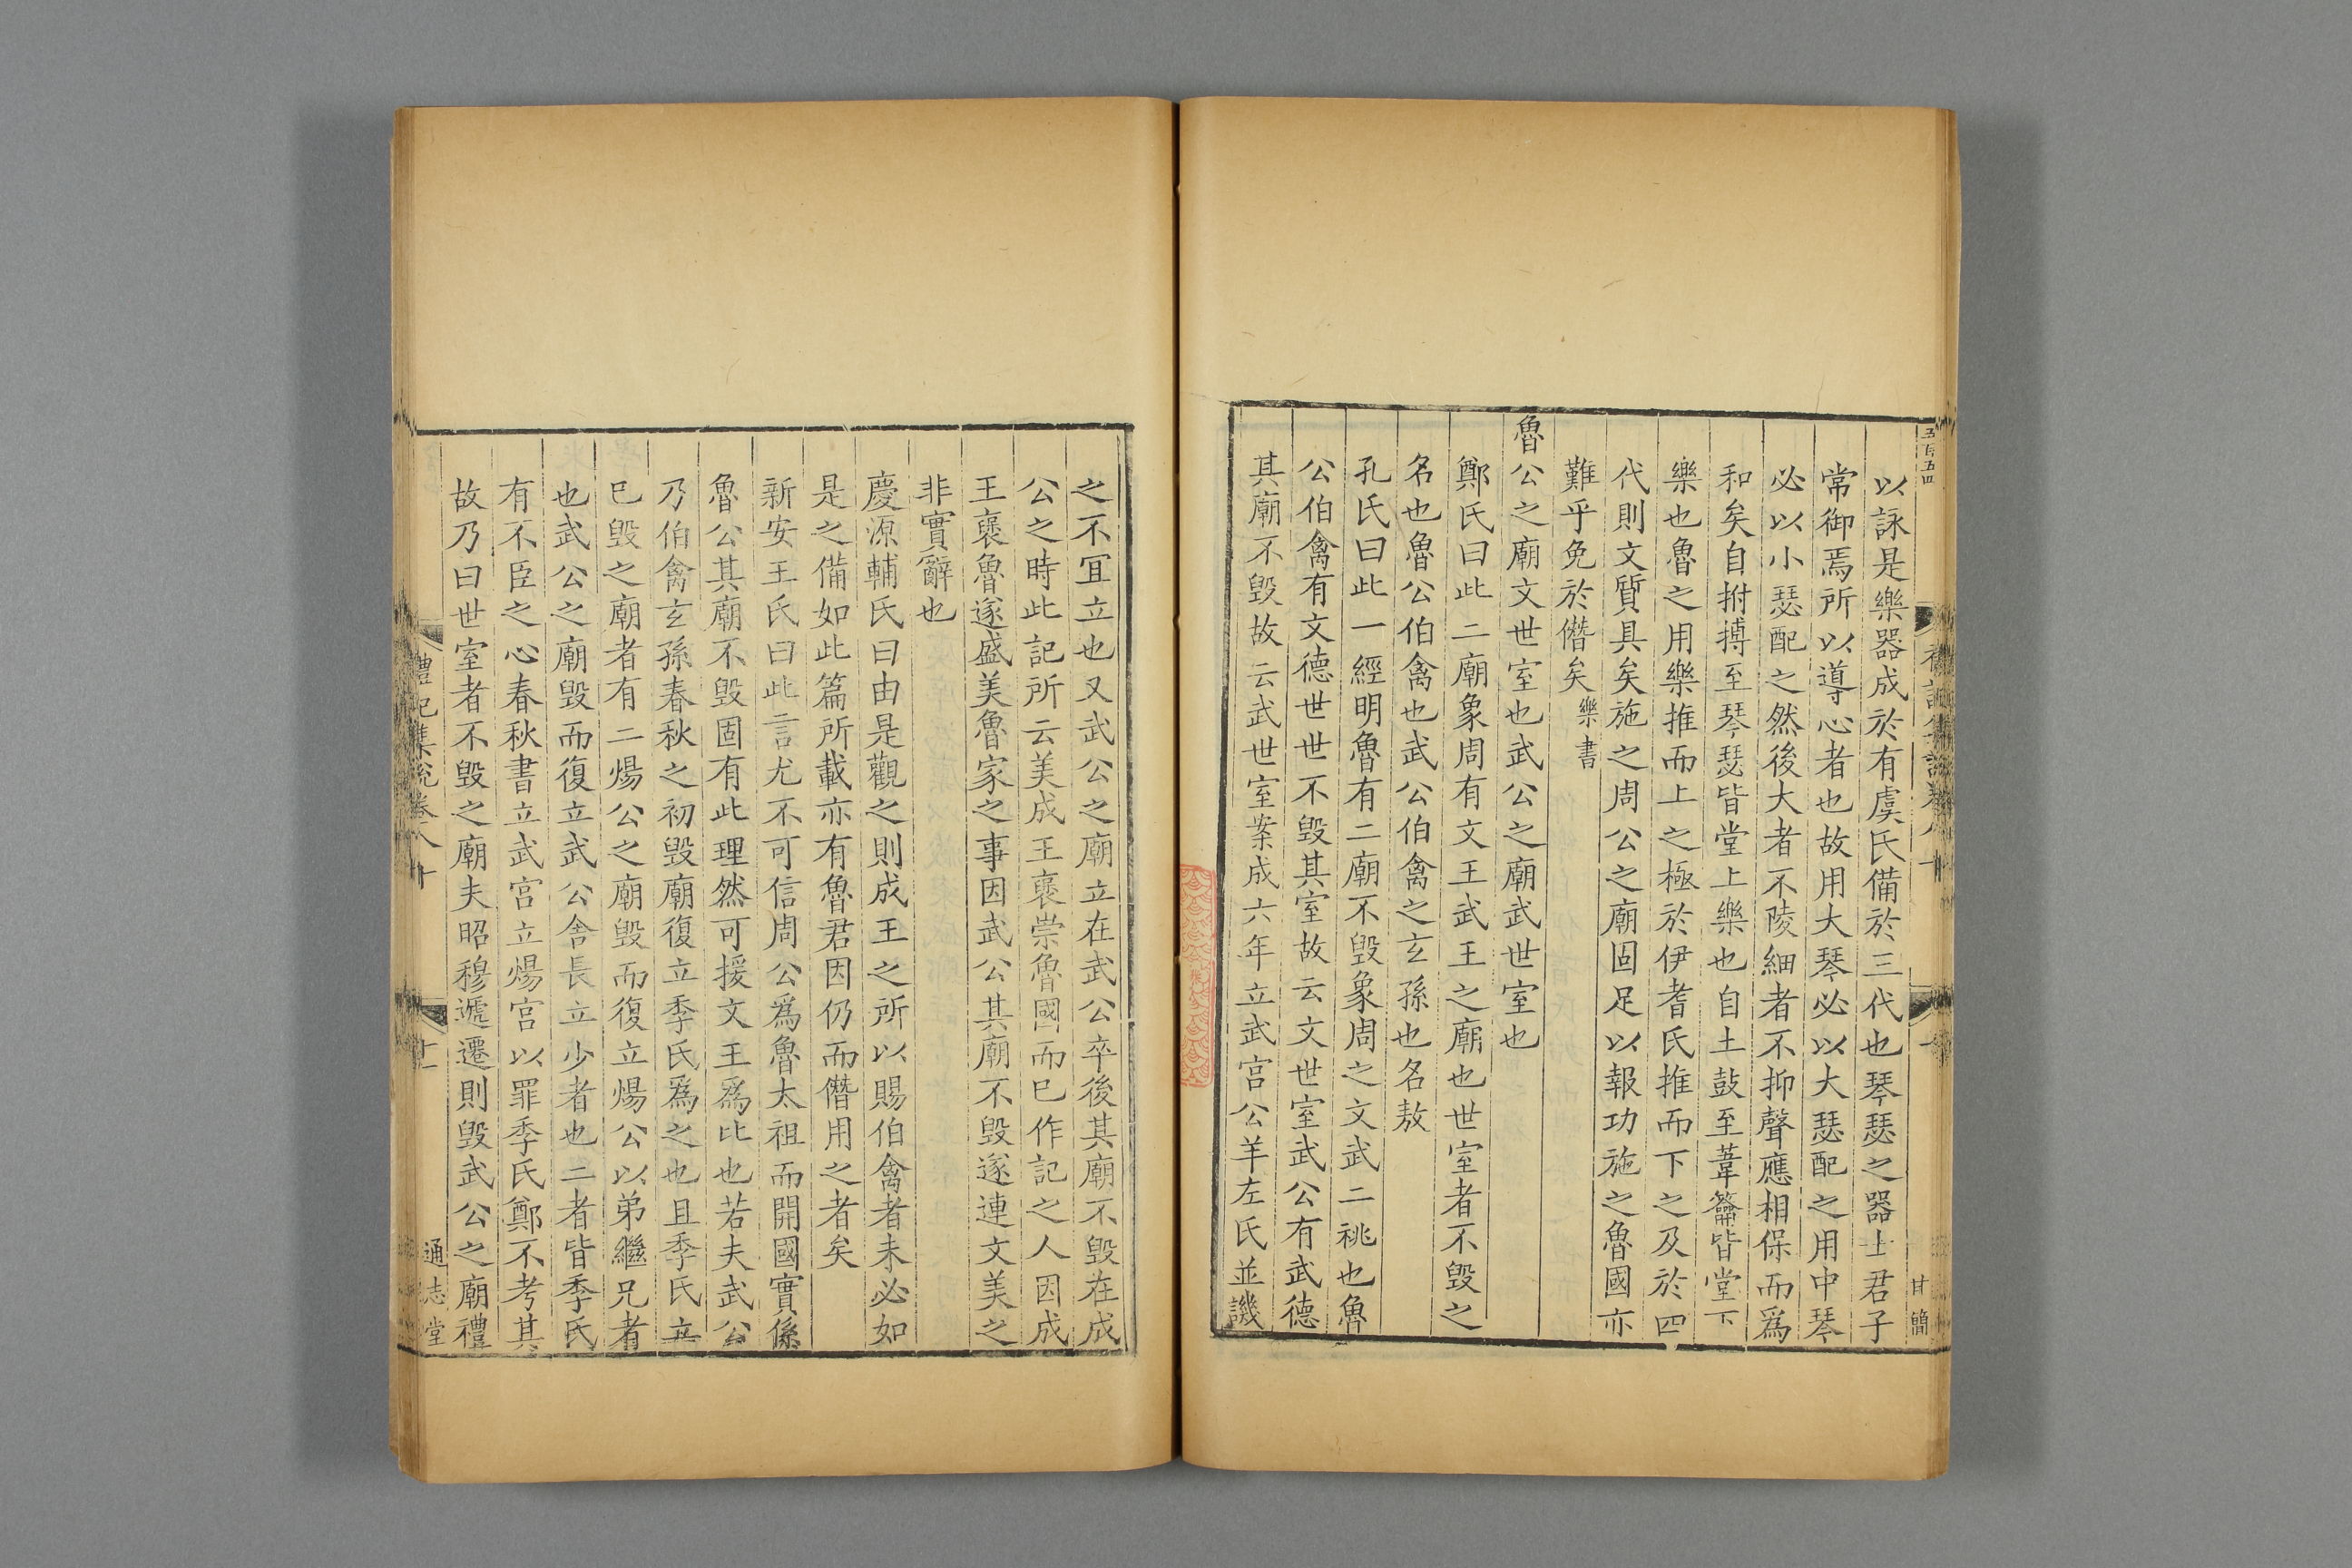 五百五四
甘簡
以詠是樂器成於有虞氏備於三代也琴瑟之器士君子
常御焉所以導心者也故用大琴必以大瑟配之用中琴
必以小瑟配之然後大者不陵細者不抑聲應相保而爲
和矣自拊搏至琴瑟皆堂上樂也自土鼓至葦籥皆堂下
樂也魯之用樂推而上之極於伊耆氏推而下之及於四
代則文質具矣施之周公之廟固足以報功施之魯國亦
難乎免於僭矣樂書
魯公之廟文世室也武公之廟武世室也
鄭氏曰此二廟象周有文王武王之廟也世室者不毀之
名也魯公伯禽也武公伯禽之玄孫也名敖
孔氏曰此一經明魯有二廟不毀象周之文武二祧也魯
公伯禽有文德世世不毀其室故云文世室武公有武德
其廟不毀故云武世室案成六年立武宮公羊左氏並譏
之不宜立也又武公之廟立在武公卒後其廟不毀在成
公之時此記所云美成王襃崇魯國而已作記之人因成
王襃魯遂盛美魯家之事因武公其廟不毀遂連文美之
非實辭也
慶源輔氏曰由是觀之則成王之所以賜伯禽者未必如
是之備如此篇所載亦有魯君因仍而僭用之者矣
新安王氏曰此言尤不可信周公爲魯太祖而開國實係
魯公其廟不毀固有此理然可援文王爲比也若夫武公
乃伯禽玄孫春秋之初毀廟復立季氏爲之也且季氏立
已毀之廟者有二煬公之廟毀而復立煬公以弟繼兄者
也武公之廟毀而復立武公舍長立少者也二者皆季氏
有不臣之心春秋書立武宮立煬宮以罪季氏鄭不考其
故乃曰世室者不毀之廟夫昭穆遞遷則毀武公之廟禮
禮記集說卷八十
通志堂